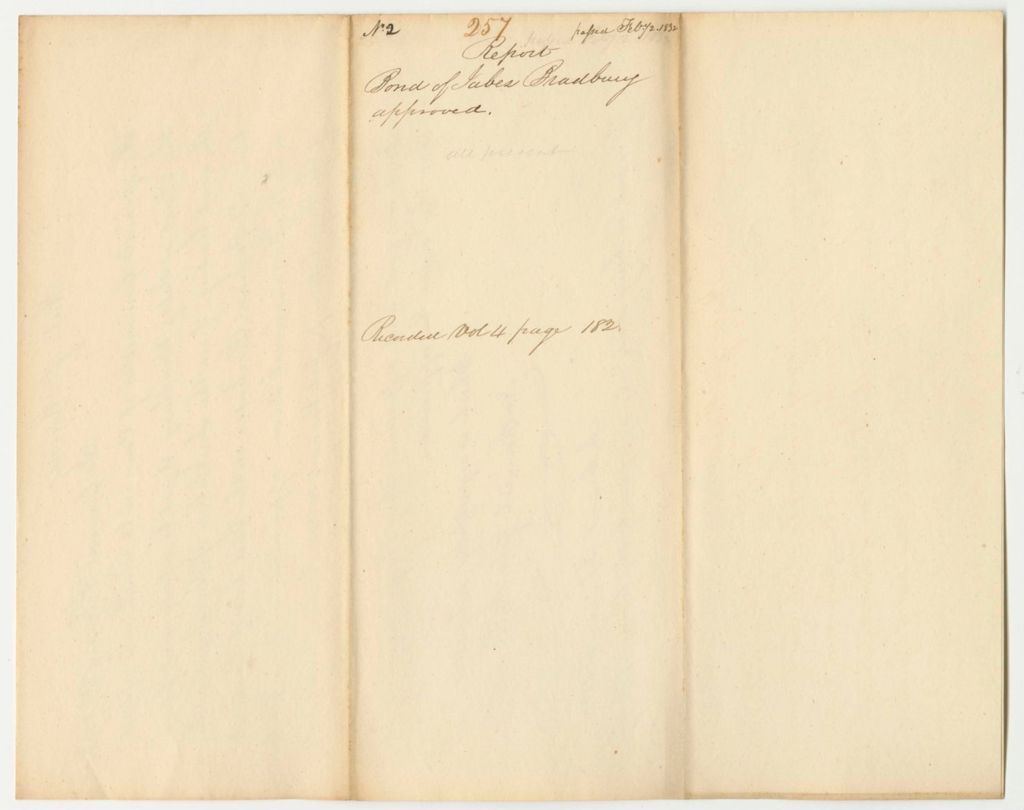 No 2 257 passed Feby 2. 1832
Report
Bond of Jabez Bradbury
approved.
all present
Recorded Vol 4 page 182.